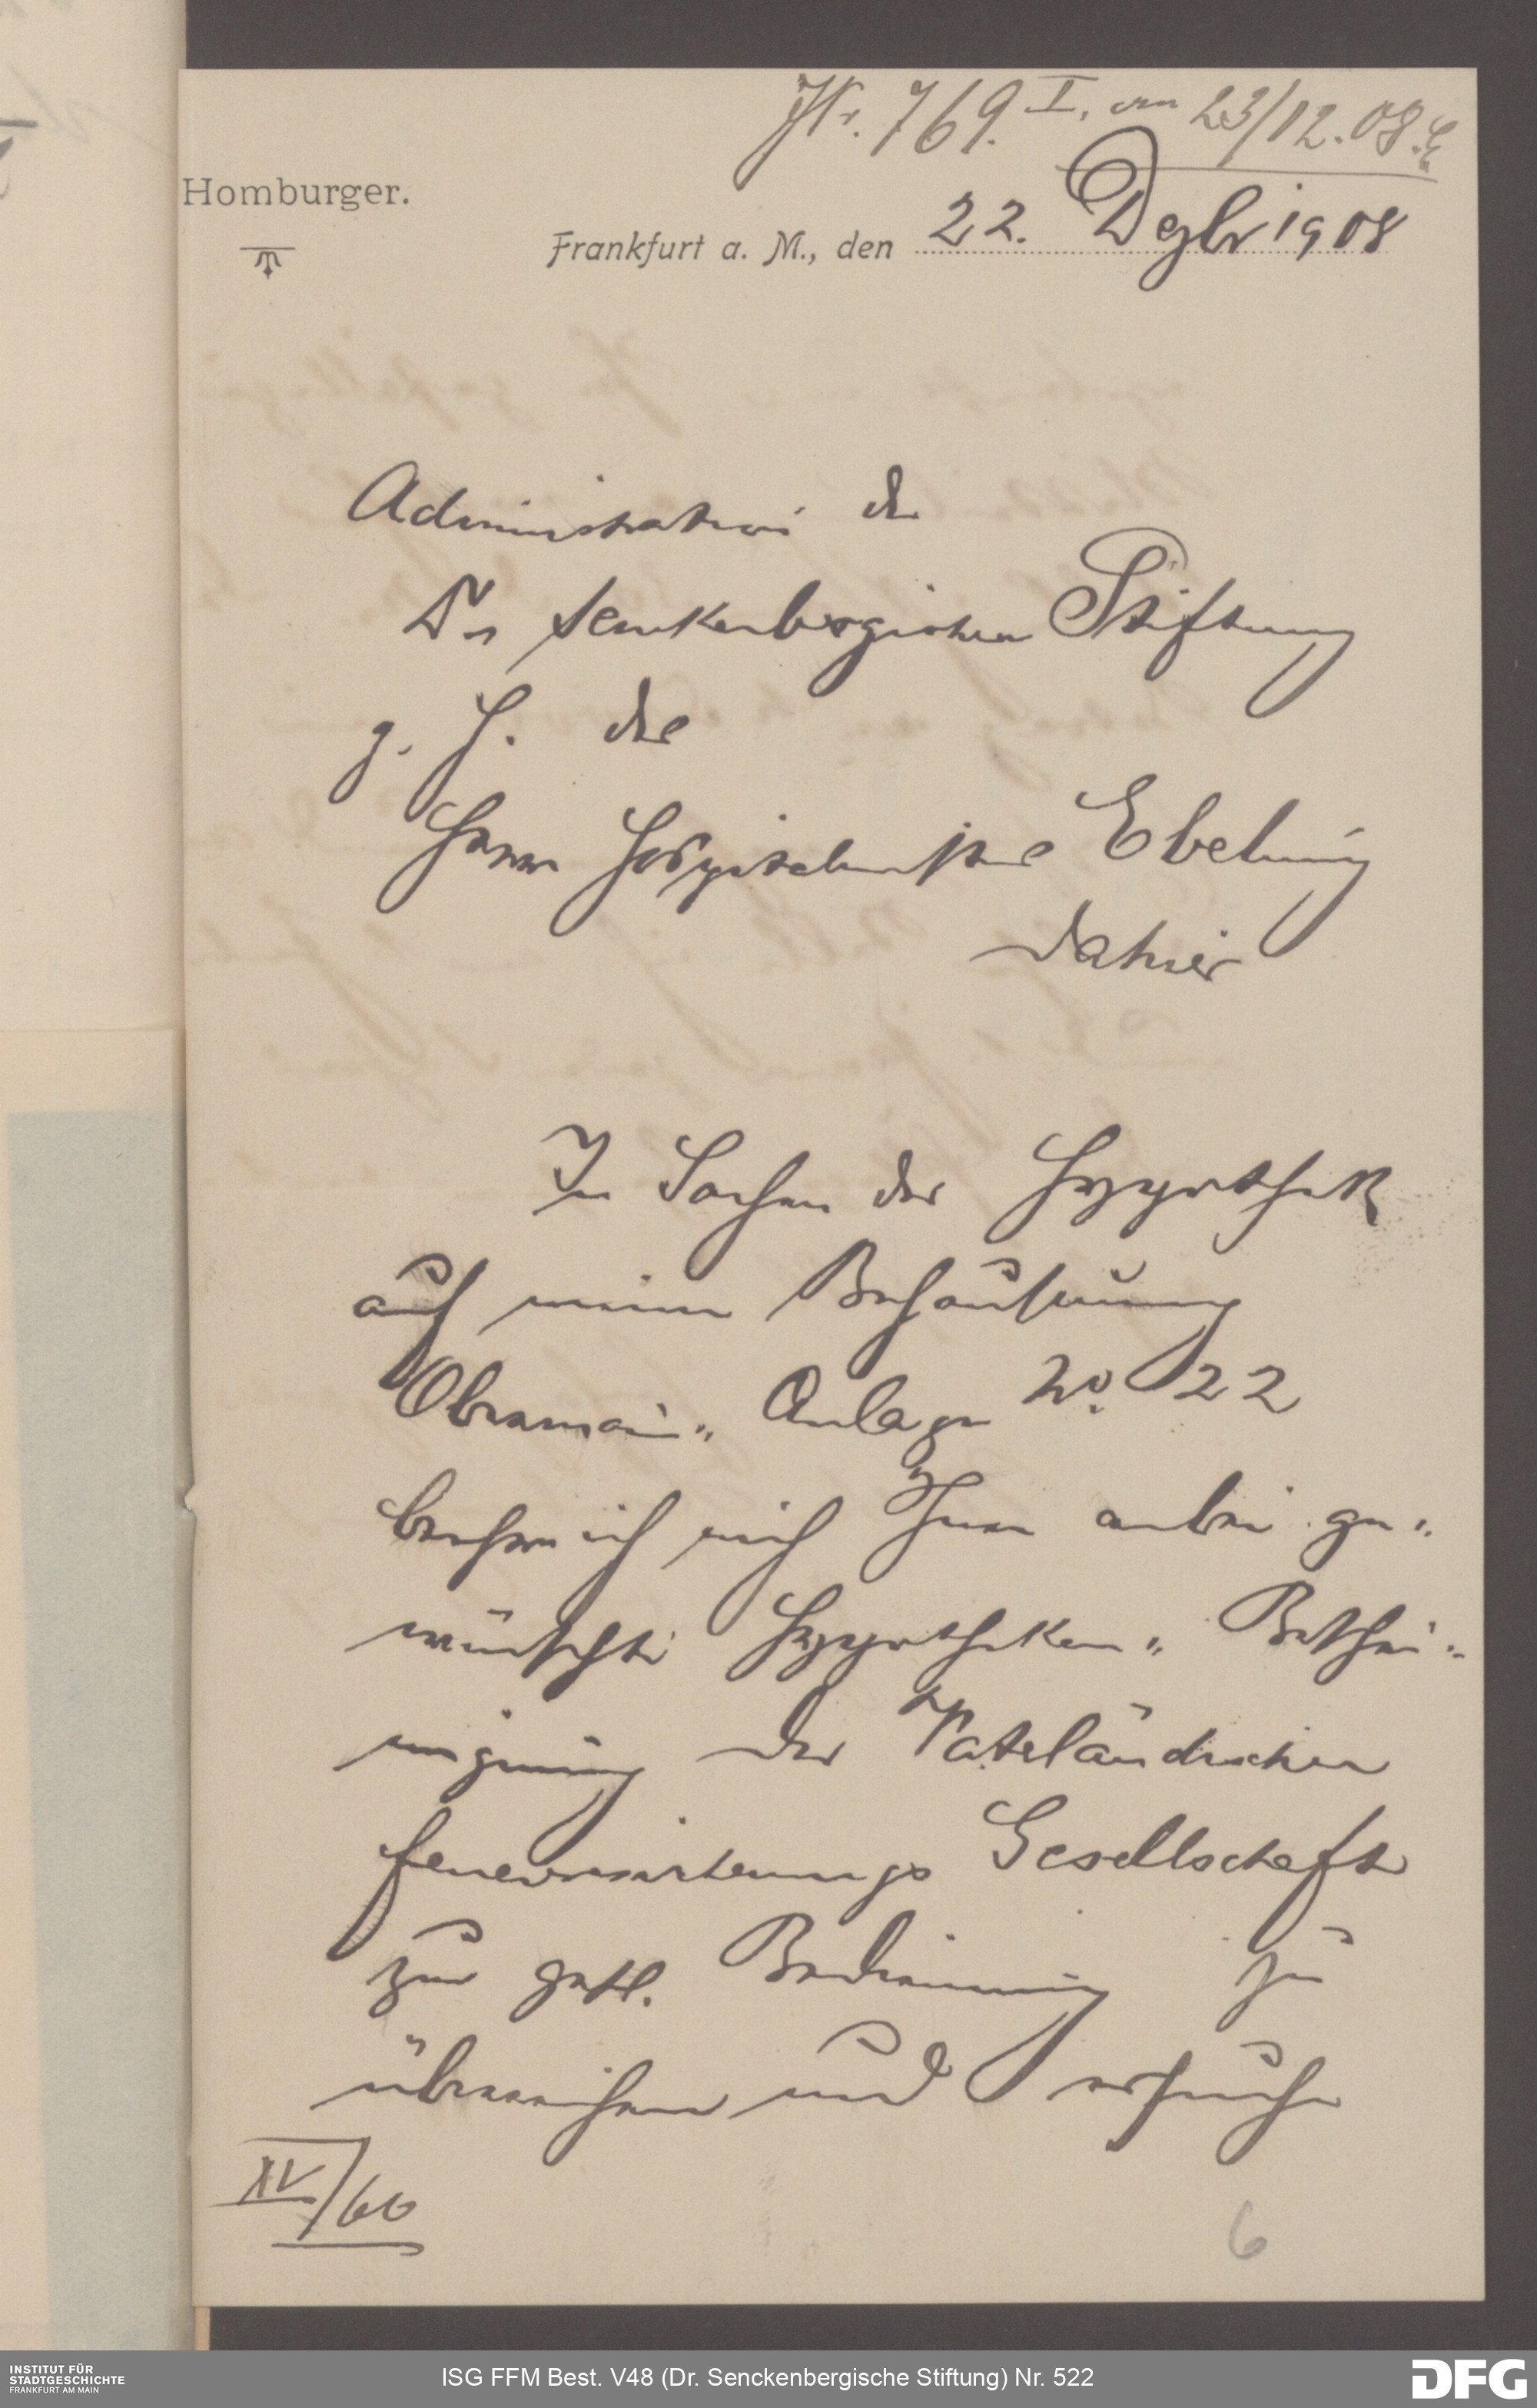 JNr. 769. I, am 23/12.08.
Homburger.
Frankfurt a. M., den 22. Dezbr 1908
Administration der
Dr Senckenbergischen Stiftung
z. H. des
Herrn Hospitalmeister Ebeling
dahier
In Sachen der Hypothek
auf meine Behausung
Obermain- Anlage No. 22
beehre ich mich Ihnen anbei ge-
wünschte Hypotheken- Beschei-
nigung der Vaterländischen
Feuerversicherungs Gesellschaft
zur gefl. Bedienung zu
überreichen und ersuche
XV/60
6
INSTITUT FÜR
STADTGESCHICHTE
FRANKFURT AM MAIN
ISG FFM Best. V48 (Dr. Senckenbergische Stiftung) Nr. 522
DFG